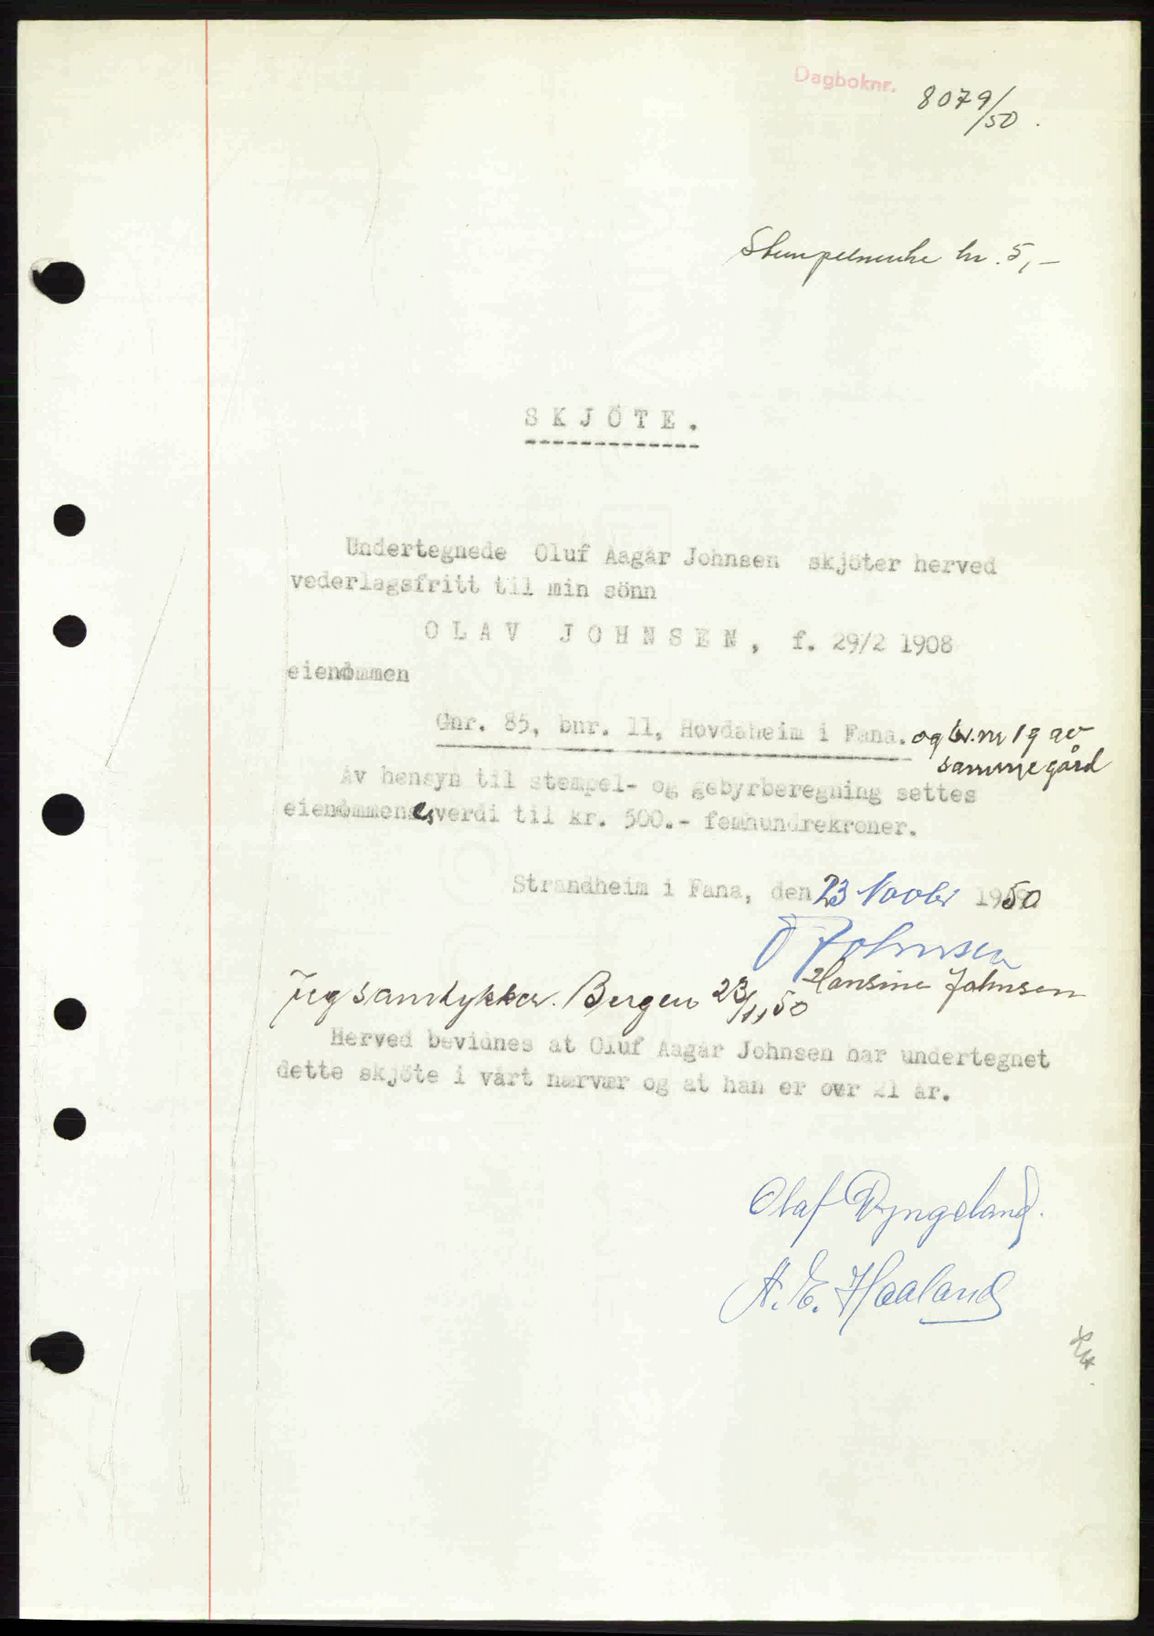 Dagboknr. 8079/50.
Stempelmerke kr. 5,-
SKJÖTE.
Undertegnede Oluf Aagår Johnsen skjöter herved
vederlagsfritt til min sönn
OLAV JOHNSEN, f. 29/2 1908
eiendommen
Gnr. 85, bnr. 11, Hovdaheim i Fana. og br.nr 19 av
samme gård
Av hensyn til stempel- og gebyrberegning settes
eiendommenes verdi til kr. 500.- femhundrekroner.
Strandheim i Fana, den 23 Novbr 1950
O Johnsen
Jeg samtykker. Bergen 23/11,50 Hansine Johnsen
Herved bevidnes at Oluf Aagår Johnsen har undertegnet
dette skjöte i vårt nærvær og at han er over 21 år.
Olaf Ryngeland.
A. E. Haaland